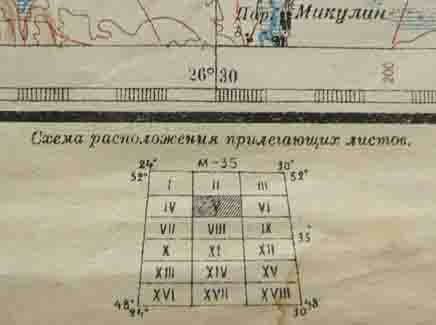 Пор. Микулин
200
26° 30
Схема расположения прилегающих листов.
24° М-35 30°
52° 52°
I II III
IV V VI
VII VIII IX
35
X XI XII
XIII XIV XV
XVI XVII XVIII
48° 48
24° 30°